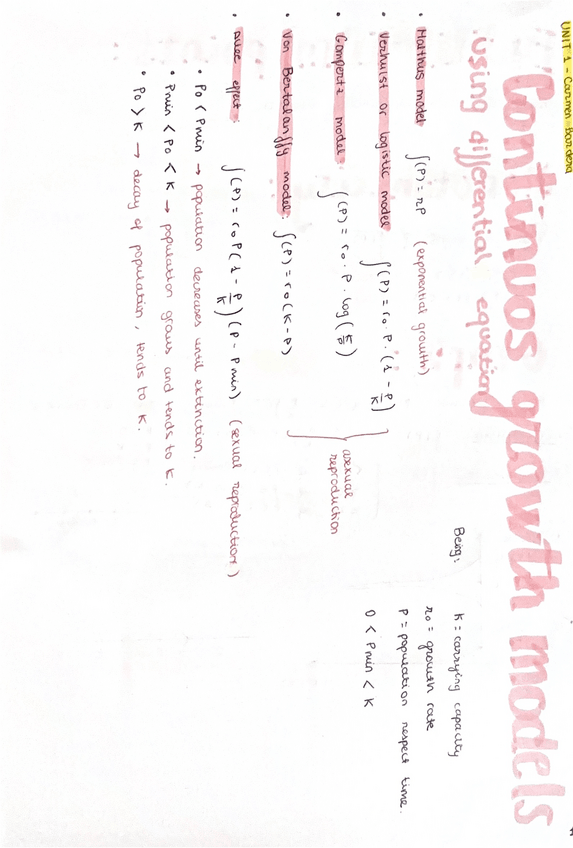 UNIT 1 - Carmen Bardera
Continuos growth models
using differential equation
Being: K = carrying capacity
r₀ = growth rate
P = population respect time.
0 < Pmin < K
• Malthus model f(P) = rP (exponential growth)
• Verhulst or logistic model f(P) = r₀ · P · (1 - P/K)
• Gompertz model: f(P) = r₀ · P · log (K/P)
• Von Bertalanffy model: f(P) = r₀ (K - P)
asexual
reproduction
• Allee effect: f(P) = r₀ P (1 - P/K) (P - Pmin) (sexual reproduction)
• P₀ < Pmin → population decreases until extinction.
• Pmin < P₀ < K → population grows and tends to K.
• P₀ > K → decay of population, tends to K.